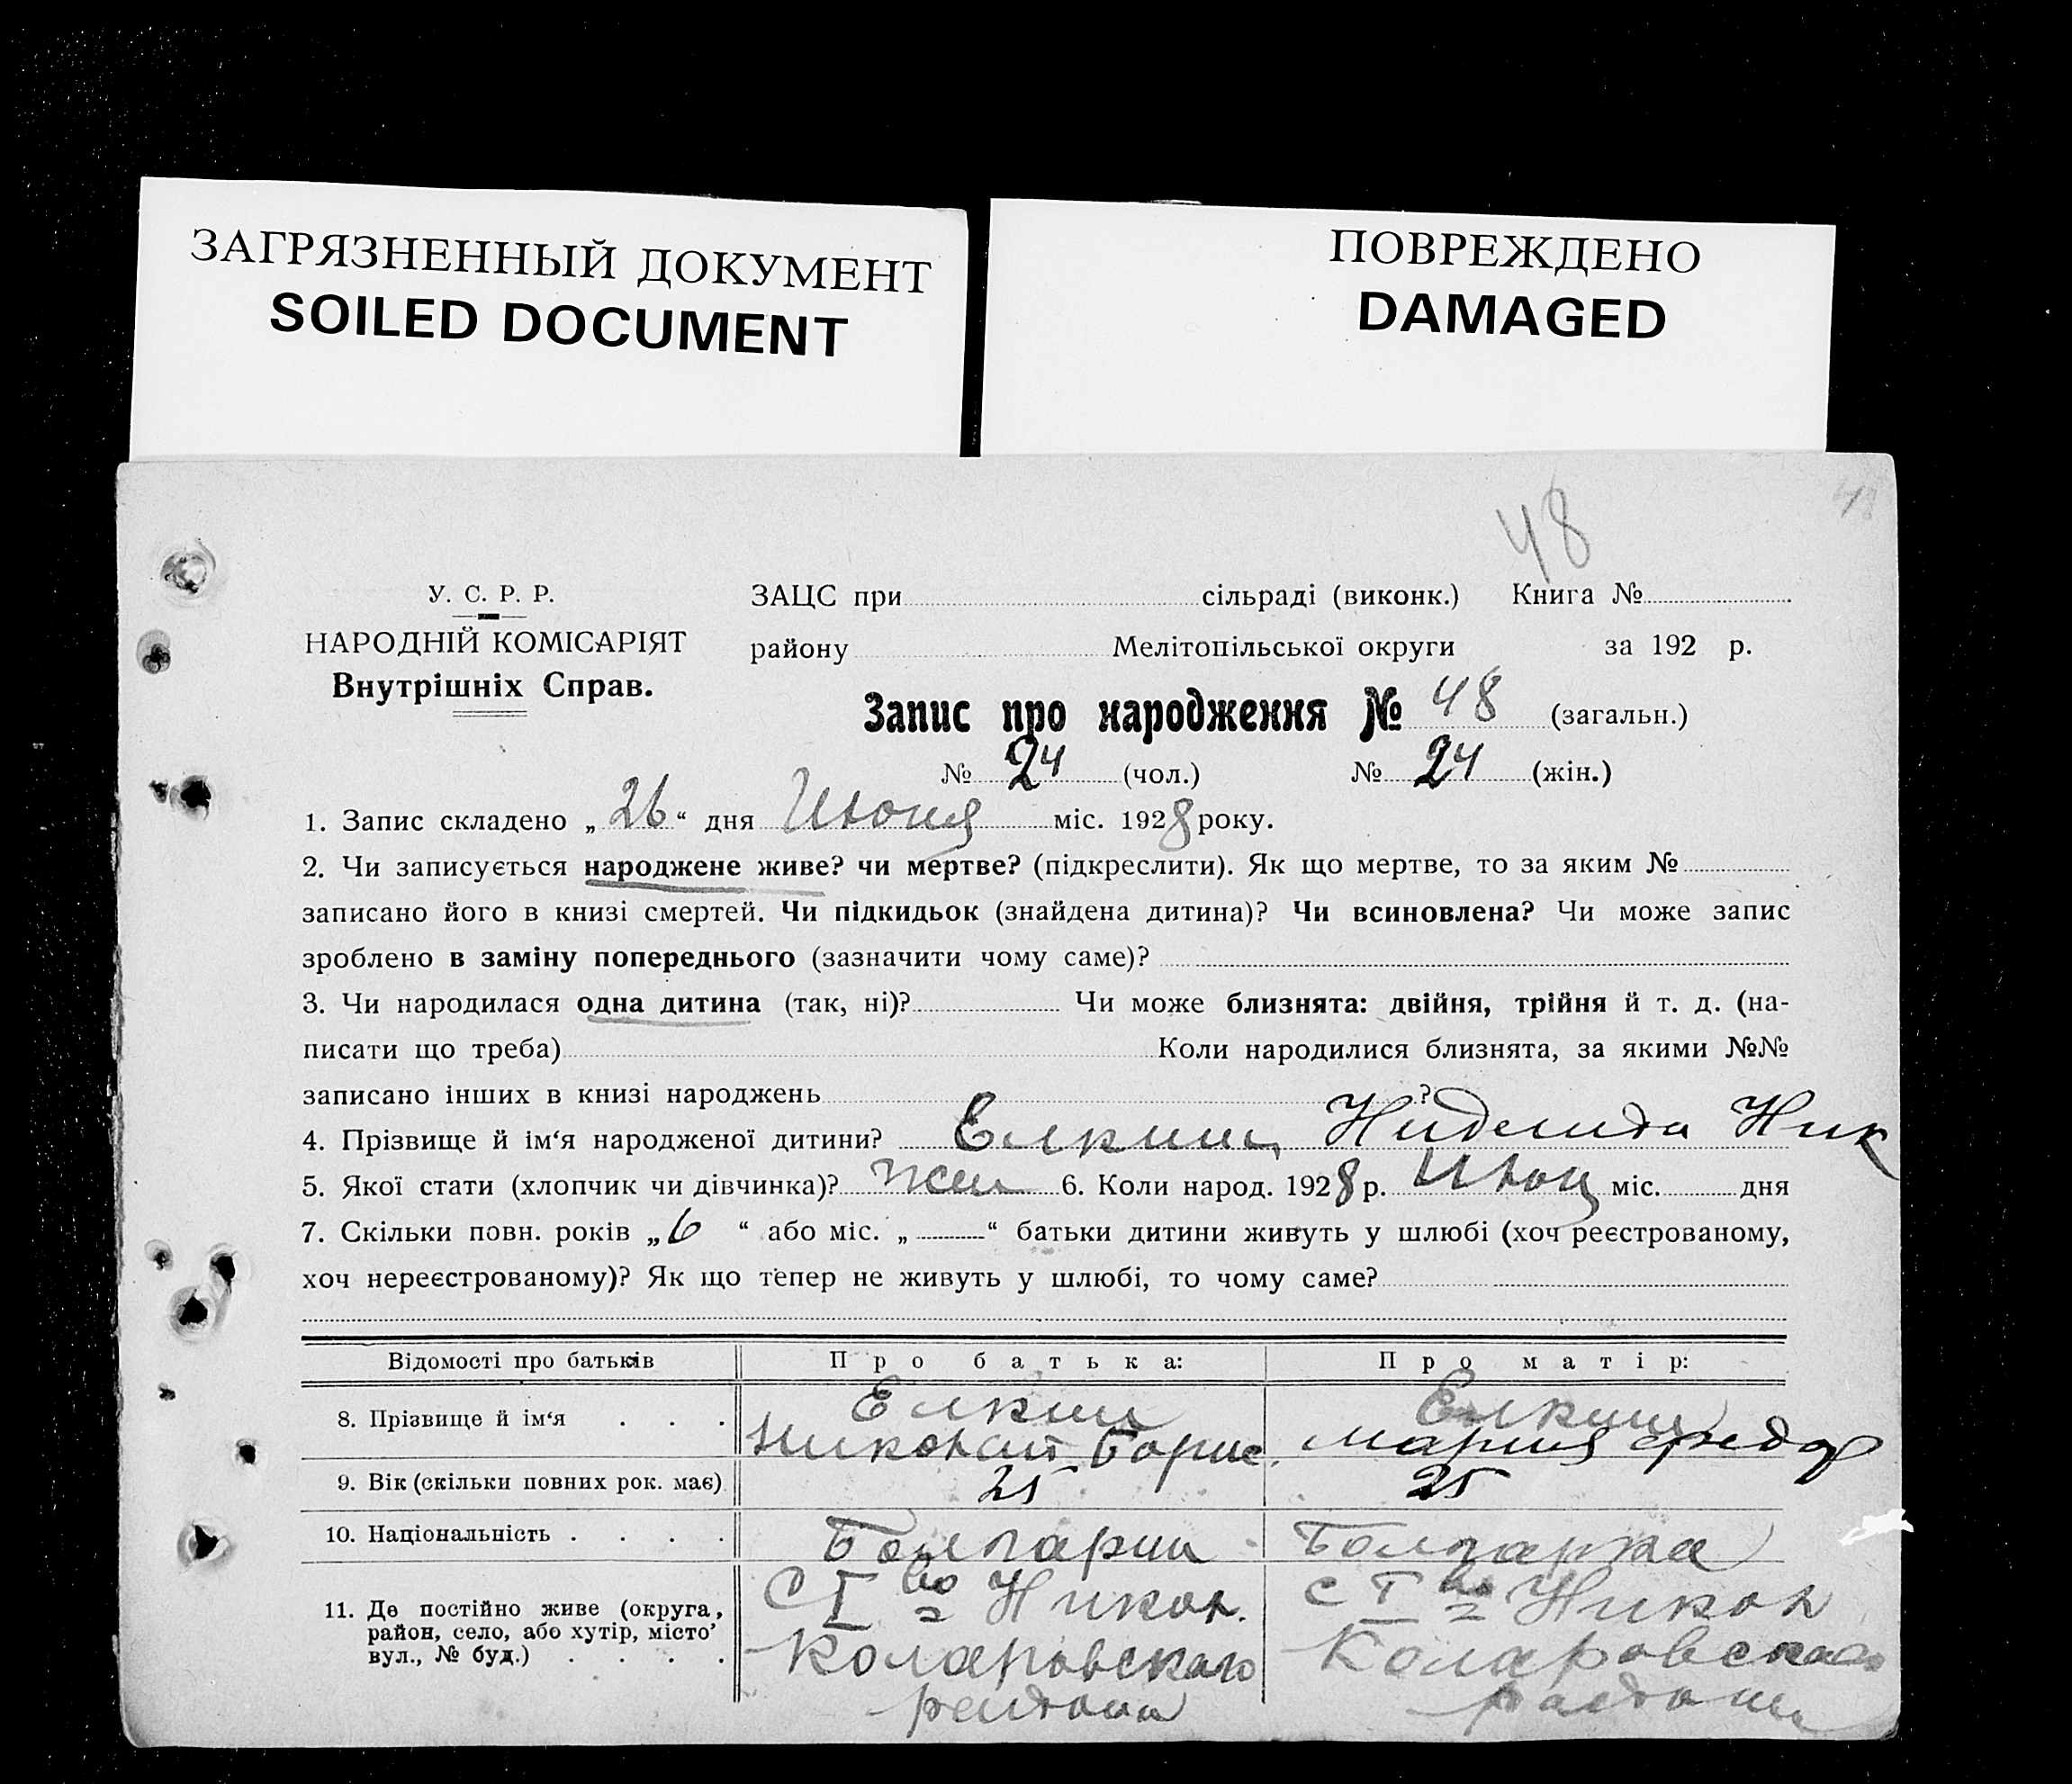 ЗАГРЯЗНЕННЫЙ ДОКУМЕНТ
SOILED DOCUMENT
ПОВРЕЖДЕНО
DAMAGED
48
У. С. Р. Р.
НАРОДНІЙ КОМІСАРІЯТ
Внутрішніх Справ.
ЗАЦС при сільраді (виконк.) Книга №
району Мелітопільської округи за 192 р.
Запис про народження № 48 (загальн.)
№ 24 (чол.) № 24 (жін.)
1. Запис складено „26“ дня Июня міс. 1928 року.
2. Чи записується народжене живе? чи мертве? (підкреслити). Як що мертве, то за яким №
записано його в книзі смертей. Чи підкидьок (знайдена дитина)? Чи всиновлена? Чи може запис
зроблено в заміну попереднього (зазначити чому саме)?
3. Чи народилася одна дитина (так, ні)? Чи може близнята: двійня, трійня й т. д. (на-
писати що треба) Коли народилися близнята, за якими №№
записано інших в книзі народжень ?
4. Прізвище й ім‘я народженої дитини? Ник
5. Якої стати (хлопчик чи дівчинка)? жен 6. Коли народ. 1928 р. міс. дня
7. Скільки повн. років „6“ або міс. „ “ батьки дитини живуть у шлюбі (хоч реєстрованому,
хоч нереєстрованому)? Як що тепер не живуть у шлюбі, то чому саме?
Відомості про батьків Про батька: Про матір:
8. Прізвище й ім‘я . . .
Николай Борис. Мария Федор
9. Вік (скільки повних рок. має) 25 25
10. Національність . . . . Болгарин Болгарка
11. Де постійно живе (округа, район, село, або хутір, місто, вул., № буд.) . . . .
С I во Никол. С I во Никол
Коларовского Коларовскаго
района района